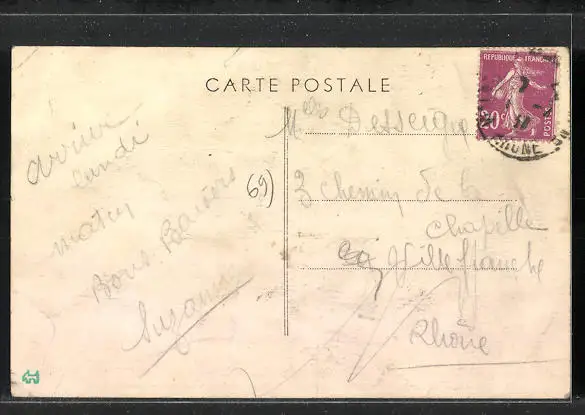 CARTE POSTALE
REPUBLIQUE FRANÇAISE
20c
POSTES
RHONE
arrive
lundi
matin
Bons Baisers
Suzanne
69)
3 chemin de la
Chapelle
Villefranche
Rhône